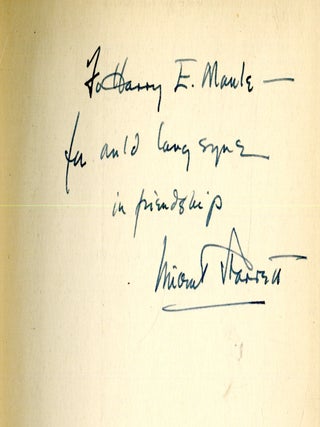 To Harry E. Maule —
for auld lang syne
in friendship
Vincent Starrett